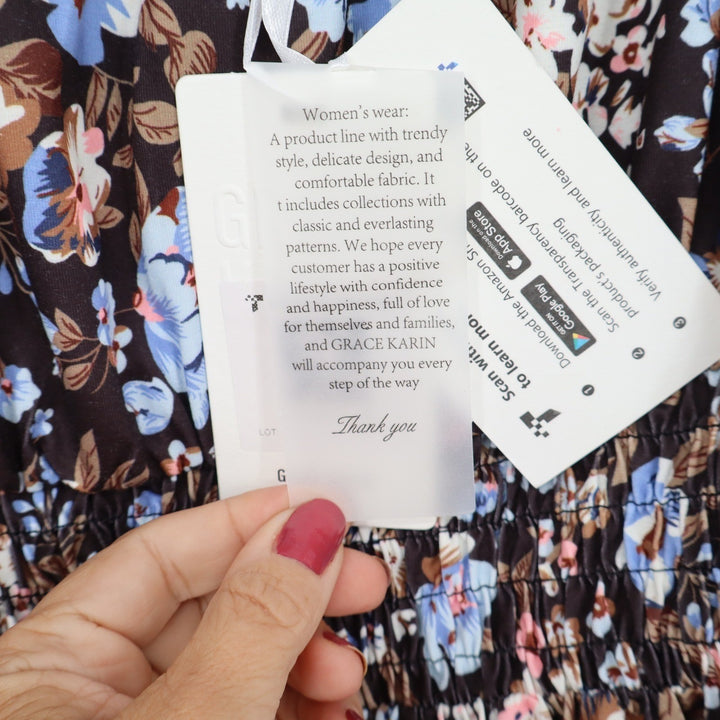 Women's wear:
A product line with trendy
style, delicate design, and
comfortable fabric. It
t includes collections with
classic and everlasting
patterns. We hope every
customer has a positive
lifestyle with confidence
and happiness, full of love
for themselves and families,
and GRACE KARIN
will accompany you every
step of the way
Thank you
G
LOT
G
Scan with
to learn mor
1 Download the Amazon S
Download on the
App Store
GET IT ON
Google Play
2 Scan the Transparency barcode on the
product's packaging
3 Verify authenticity and learn more